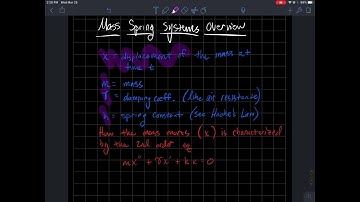 2:28 PM Mon Mar 29
Mass Spring Systems Overview
x = displacement of the mass at
time t
m = mass
γ = damping coeff. (like air resistance)
k = spring constant (see Hooke's Law)
How the mass moves (x) is characterized
by the 2nd order eq
mx" + γx' + kx = 0